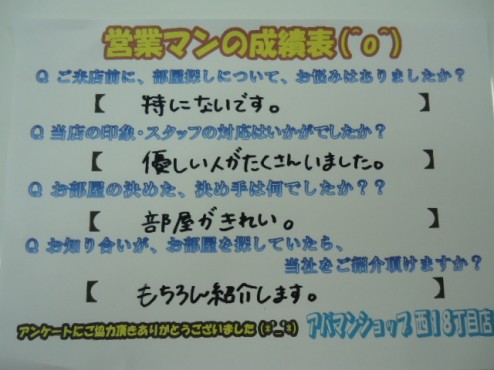 営業マンの成績表(^o^)
Q ご来店前に、部屋探しについて、お悩みはありましたか？
【 特にないです。 】
Q 当店の印象・スタッフの対応はいかがでしたか？
【 優しい人がたくさんいました。 】
Q お部屋の決めた、決め手は何でしたか？？
【 部屋がきれい。 】
Q お知り合いが、お部屋を探していたら、
当社をご紹介頂けますか？
【 もちろん紹介します。 】
アンケートにご協力頂きありがとうございました(*^_^*) アパマンショップ 西18丁目店